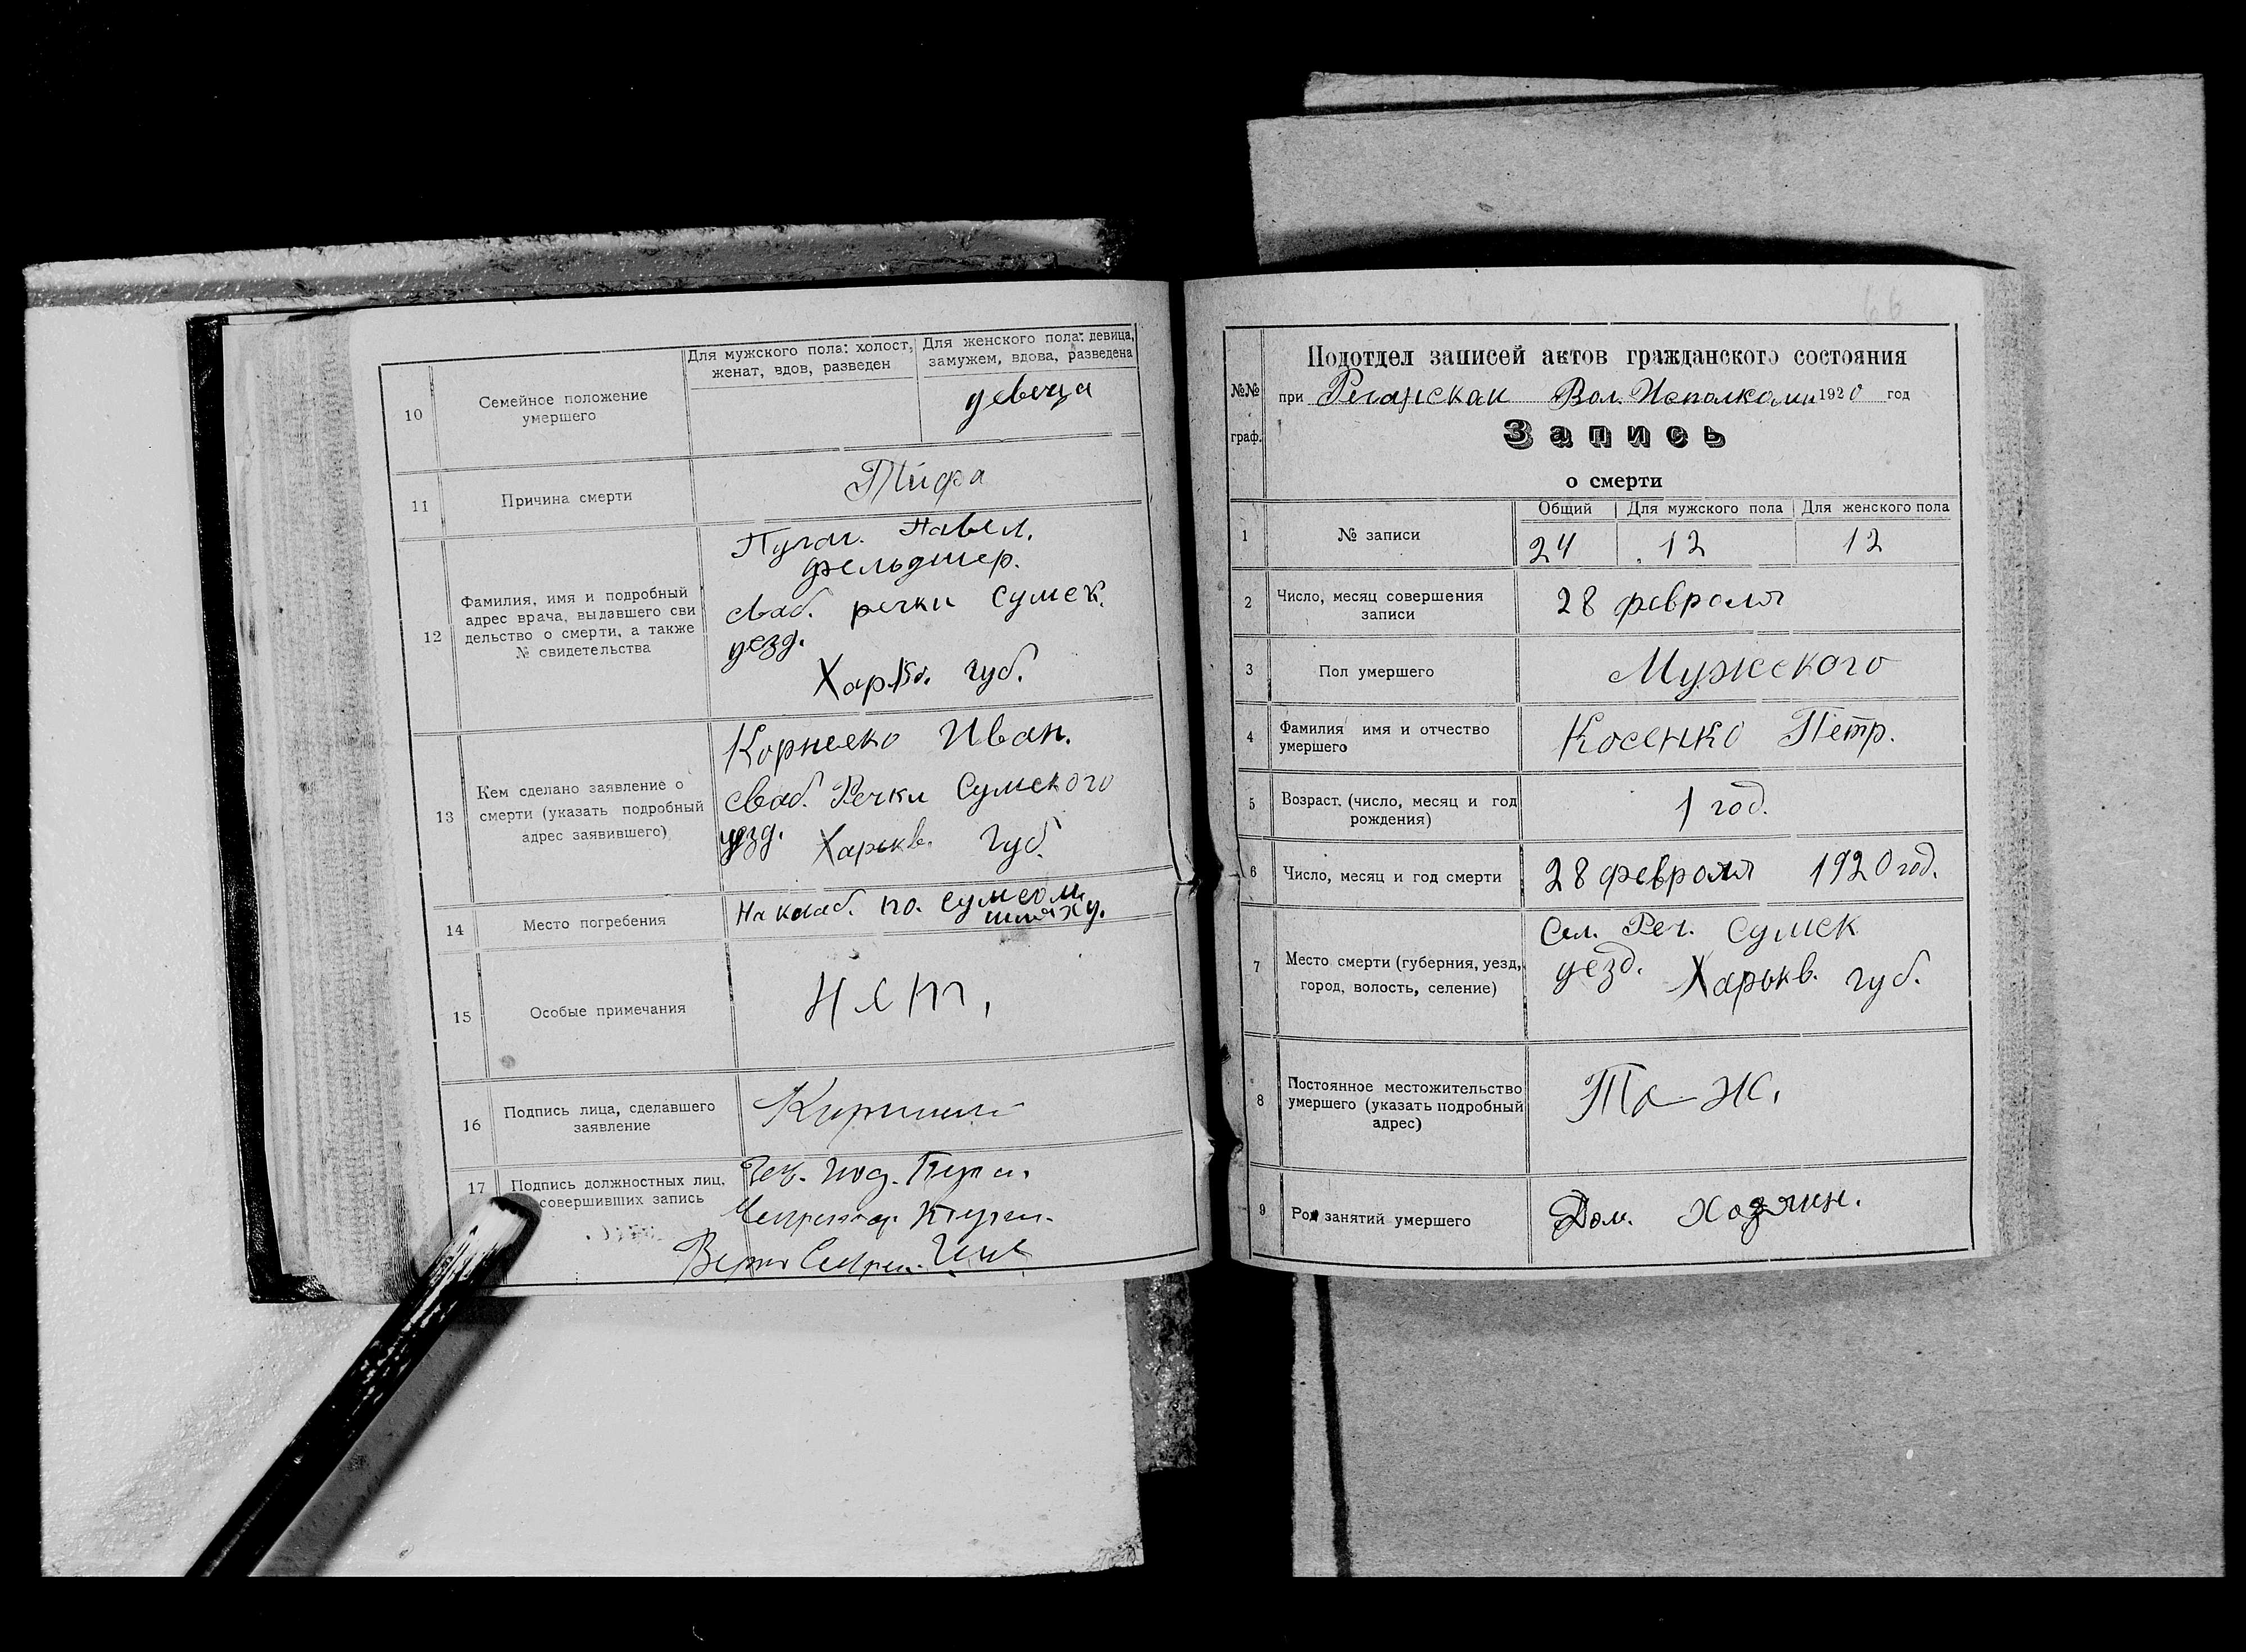 Для мужского пола: холост, женат, вдов, разведен
Для женского пола: девица, замужем, вдова, разведена
10 Семейное положение умершего
девеца
11 Причина смерти
Тифа
12 Фамилия, имя и подробный
адрес врача, выдавшего сви
дельство о смерти, а также
№ свидетельства
Павел.
фельдшер.
сваб. речки Сумск.
уезд.
губ.
13 Кем сделано заявление о
смерти (указать подробный
адрес заявившего)
Иван.
сваб. Речки Сумского
уезд. Харькв. Губ.
14 Место погребения
На клаб. по.
шляху.
15 Особые примечания
Нет,
16 Подпись лица, сделавшего
заявление
17 Подпись должностных лиц,
совершивших запись
66
Подотдел записей актов гражданского состояния
№№ граф.
при Вол. 1920 год
Запись
о смерти
Общий Для мужского пола Для женского пола
1 № записи 24 12 12
2 Число, месяц совершения
записи
28 февраля
3 Пол умершего Мужского
4 Фамилия имя и отчество
умершего
Косенко Петр.
5 Возраст, (число, месяц и год
рождения)
1 год.
6 Число, месяц и год смерти 28 февраля 1920 год.
7 Место смерти (губерния, уезд,
город, волость, селение)
Сел. Реч. Сумск
уезд. Харькв. губ.
8 Постоянное местожительство
умершего (указать подробный
адрес)
9 Род занятий умершего Дом. Хозяин.